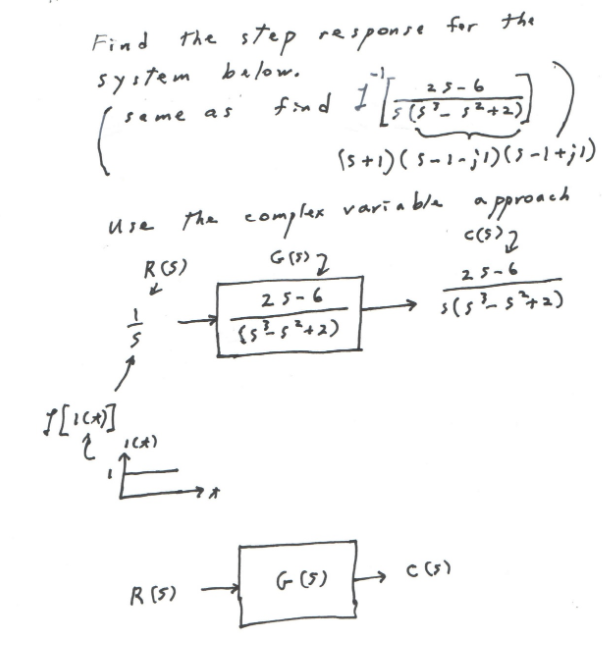 Find the step response for the
system below.
(same as find ℒ⁻¹[(2s-6)/(s(s³-s²+2))])
(s+1)(s-1-j1)(s-1+j1)
Use the complex variable approach
R(s) G(s) C(s)
1/s → (2s-6)/(s³-s²+2) → (2s-6)/(s(s³-s²+2))
ℒ[1(t)]
1(t)
1
t
R(s) → G(s) → C(s)